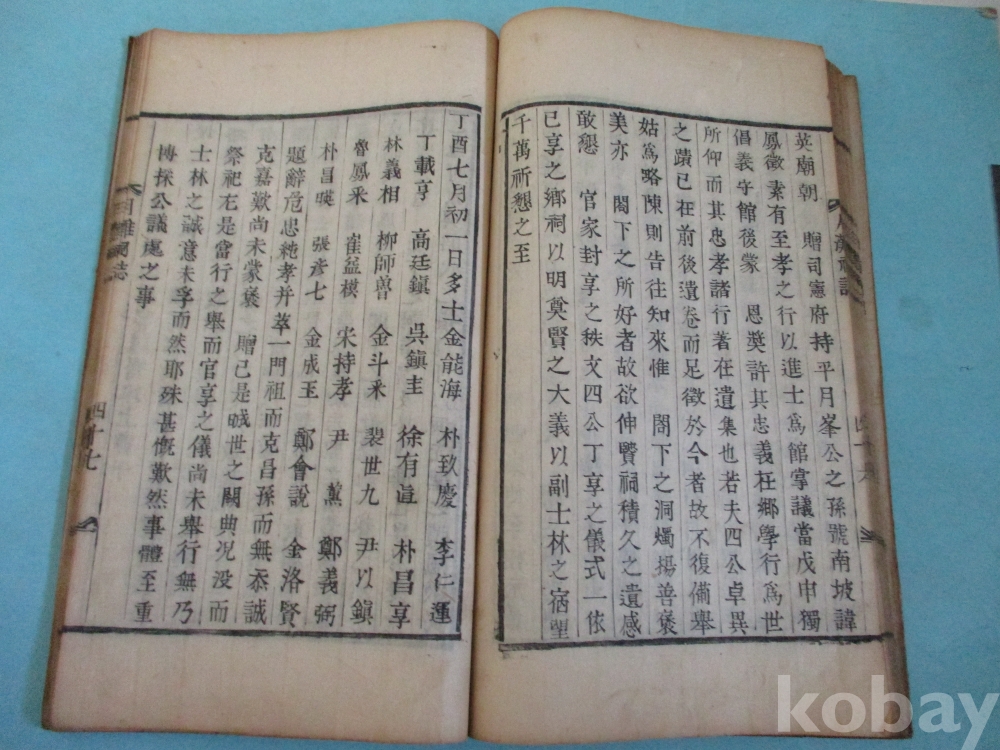 英朝朝　贈司憲府持平月峯公之孫號南坡諱
鳳徵素有至孝之行以進士爲館掌議當戊申獨
倡義守館後蒙　恩奬許其忠義在鄉學行爲世
所仰而其忠孝諸行著在遺集也若夫四公卓異
之蹟已在前後遺卷而足徵於今者故不復備舉
姑爲略陳則告往知來惟　閤下之洞燭揚善褒
美亦　閤下之所好者故欲伸賢祠積久之遺感
敢懇　官家封享之秩文四公丁享之儀式一依
已享之鄉祠以明奠賢之大義以副士林之宿望
千萬祈懇之至
丁酉七月初一日多士金能海　朴致慶　李仁運
丁載亨　高廷鎮　吳鎮圭　徐有　朴昌享
林義相　柳師曾　金斗釆　裴世九　尹以鎮
魯鳳釆　崔益模　宋持孝　尹薰　鄭義弼
朴昌暎　張彦七　金成玉　鄭會說　金洛賢
題辭危忠純孝并萃一門祖而克昌孫而無忝誠
克嘉歎尚未蒙褒　贈已是　世之闕典况没而
祭祀在是當行之舉而官享之儀尚未舉行無乃
士林之誠意未孚而然耶殊甚慨歎然事體至重
博採公議處之事
祠誌
四十七
kobay